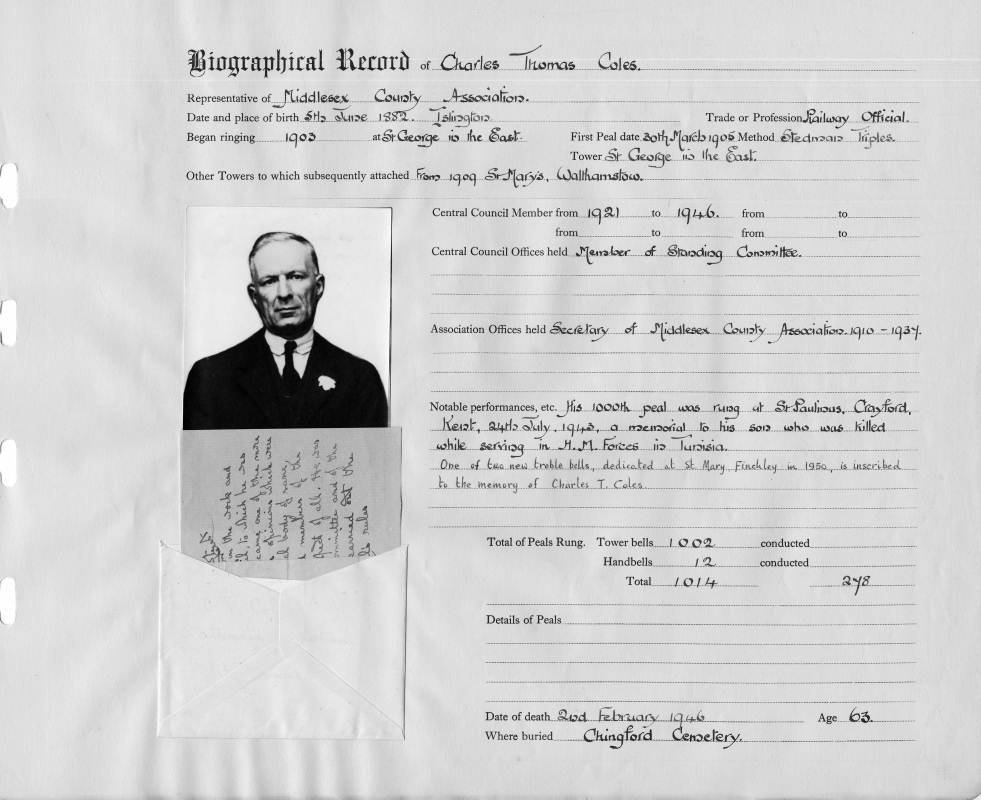 Biographical Record of Charles Thomas Coles.
Representative of Middlesex County Association.
Date and place of birth 5th June 1882. Islington Trade or Profession Railway Official.
Began ringing 1903 at St George in the East. First Peal date 30th March 1905 Method Stedman Triples.
Tower St George in the East.
Other Towers to which subsequently attached From 1909 St Mary's, Walthamstow.
Central Council Member from 1921 to 1946. from to
from to from to
Central Council Offices held Member of Standing Committee.
Association Offices held Secretary of Middlesex County Association. 1910 - 1937.
Notable performances, etc. His 1000th peal was rung at St Paulinus, Crayford,
Kent, 24th July, 1943, a memorial to his son who was killed
while serving in H.M. Forces in Tunisia.
One of two new treble bells, dedicated at St. Mary, Finchley in 1950, is inscribed
to the memory of Charles T. Coles.
in the work and
to which he was
came one of the more
opinions which were
body of many
members of the
of all. He was
and of the
carried out the
rules
Total of Peals Rung. Tower bells 1002 conducted
Handbells 12 conducted
Total 1014 278
Details of Peals
Date of death 2nd February 1946 Age 63.
Where buried Chingford Cemetery.